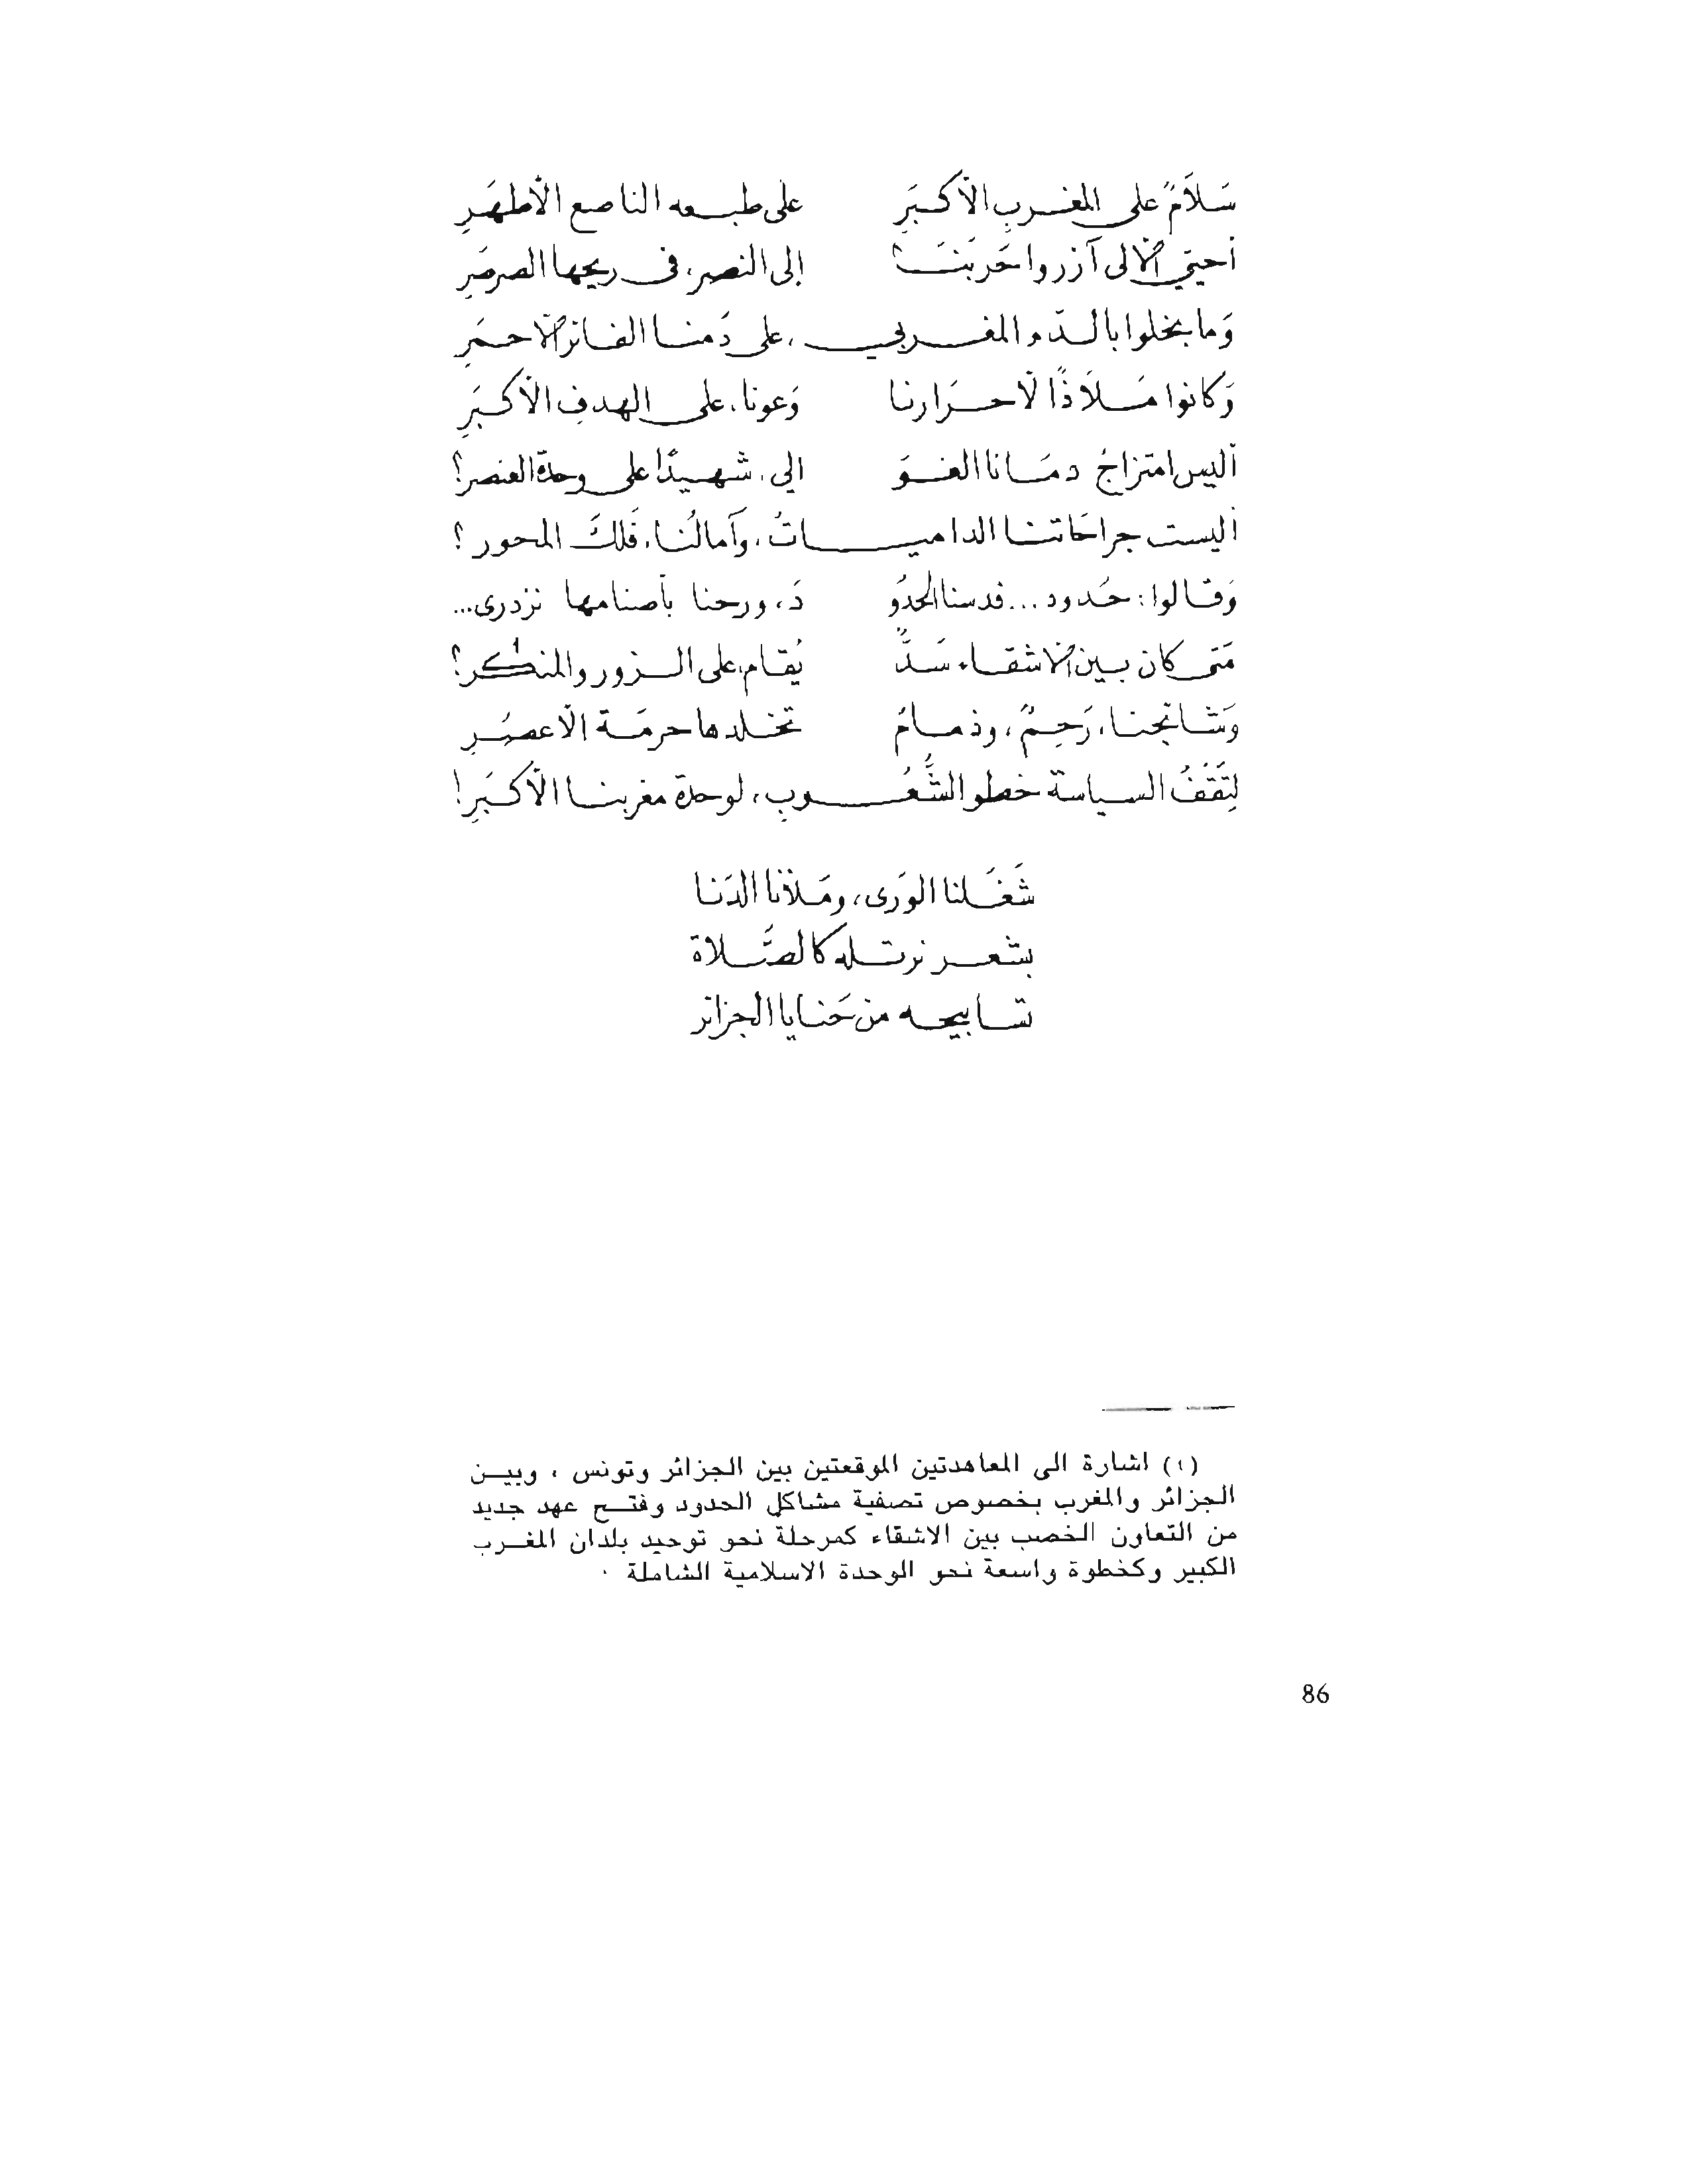 سَلاَمٌ على المغربِ الأكبَرِ على طبعه الناصع الأطهَرِ
أحيّي الألى آزروا حَربَنَا إلى النصر، في ريحها الصرصَرِ
وَما بخلوا بالدّم المغربي، على دَمنا الفائر الأحمَرِ
وَكانوا مَلاَذًا لأحرَارنا وَعونا، على الهدفِ الأكبَرِ
أليس امتزاجُ دمَانا الغَوَ الي، شهيدًا على وحدة العنصر؟
أليست جراحَاتنا الداميـاتُ، وآمالُنا، فَلكَ المحور؟
وَقالوا: حُدود... قدسنا الحدُو دَ، ورحنا بأصنامها نزدرى...
مَتى كان بين الأشقاء سَدٌّ يُقام، على الزور والمنكر؟
وَشائجنا، رَحِمٌ، وذمامٌ تخلدها حرمَة الأعصُرِ
لِتَقْفُ السياسة خطو الشُّعُوبِ، لوحدة مغربنا الأكبَرِ!
شَغَلنا الوَرى، ومَلأنا الدُنا
بشعر نرتله كالصَّلاة
تسابيحه من حَنايا الجزائر
(١) اشارة الى المعاهدتين الموقعتين بين الجزائر وتونس ، وبين
الجزائر والمغرب بخصوص تصفية مشاكل الحدود وفتح عهد جديد
من التعاون الخصب بين الاشقاء كمرحلة نحو توحيد بلدان المغرب
الكبير وكخطوة واسعة نحو الوحدة الاسلامية الشاملة ٠
86